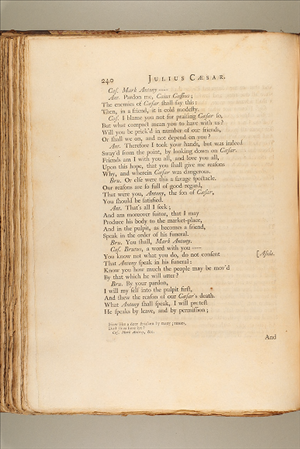 240 JULIUS CÆSAR.
Cas. Mark Antony ——
Ant. Pardon me, Caius Cassius;
The enemies of Cæsar shall say this:
Then, in a friend, it is cold modesty.
Cas. I blame you not for praising Cæsar so,
But what compact mean you to have with us?
Will you be prick'd in number of our friends,
Or shall we on, and not depend on you?
Ant. Therefore I took your hands, but was indeed
Sway'd from the point, by looking down on Cæsar.
Friends am I with you all, and love you all,
Upon this hope, that you shall give me reasons
Why, and wherein Cæsar was dangerous.
Bru. Or else were this a savage spectacle.
Our reasons are so full of good regard,
That were you, Antony, the son of Cæsar,
You should be satisfied.
Ant. That's all I seek;
And am moreover sutor, that I may
Produce his body to the market-place,
And in the pulpit, as becomes a friend,
Speak in the order of his funeral.
Bru. You shall, Mark Antony.
Cas. Brutus, a word with you ——
You know not what you do, do not consent [Aside.
That Antony speak in his funeral:
Know you how much the people may be mov'd
By that which he will utter?
Bru. By your pardon,
I will my self into the pulpit first,
And shew the reason of our Cæsar's death.
What Antony shall speak, I will protest
He speaks by leave, and by permission;
Cas. Mark Antony, &c.
And